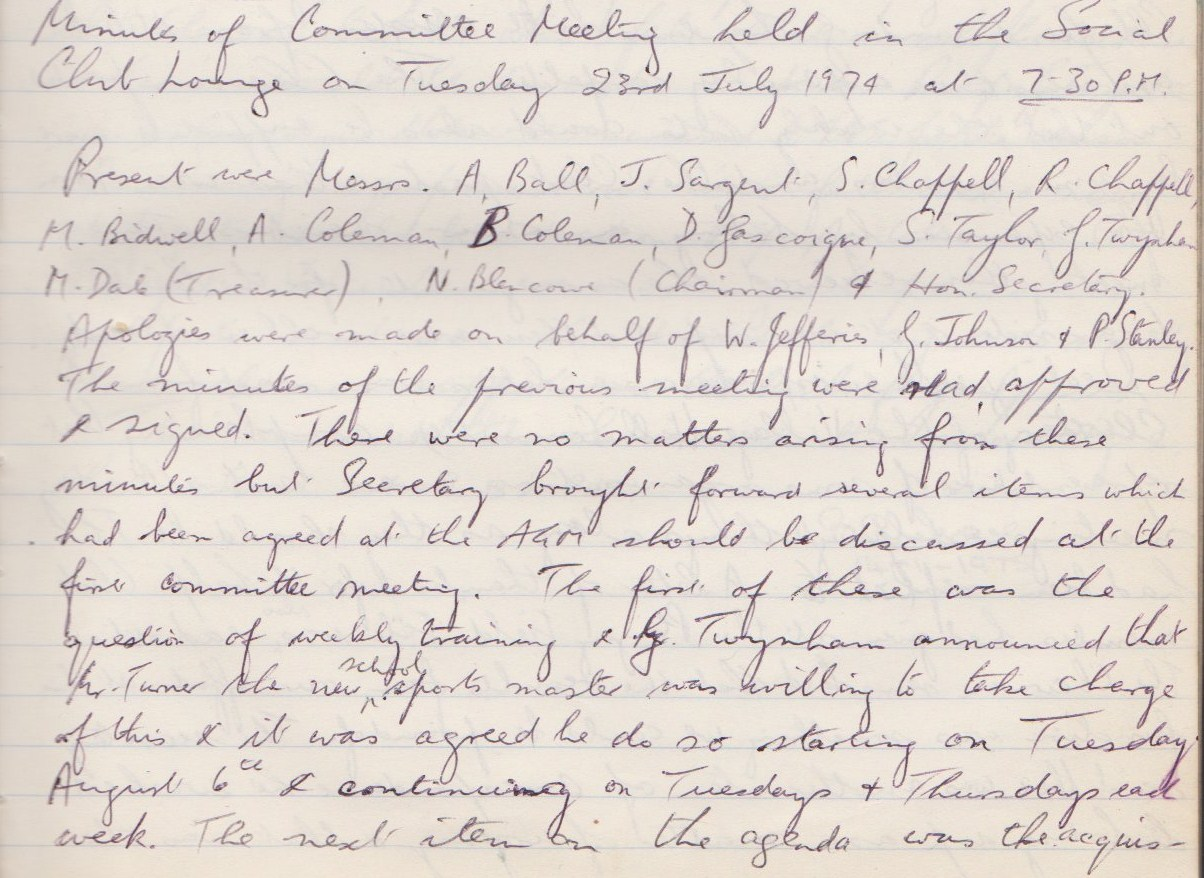 Minutes of Committee Meeting held in the Social
Club Lounge on Tuesday 23rd July 1974 at 7-30 P.M.
Present were Messrs. A. Ball, J. Sargent, S. Chappell, R. Chappell,
M. Bidwell, A. Coleman, B. Coleman, D. Gascoigne, S. Taylor, G. Twynham
M. Dale (Treasurer), N. Blencowe (Chairman) & Hon. Secretary.
Apologies were made on behalf of W. Jefferies, G. Johnson & P. Stanley.
The minutes of the previous meeting were read, approved
& signed. There were no matters arising from these
minutes but Secretary brought forward several items which
had been agreed at the AGM should be discussed at the
first committee meeting. The first of these was the
question of weekly training & G. Twynham announced that
Mr. Turner the new school sports master was willing to take charge
of this & it was agreed he do so starting on Tuesday
August 6th & continuing on Tuesdays & Thursdays each
week. The next item on the agenda was the acquis-